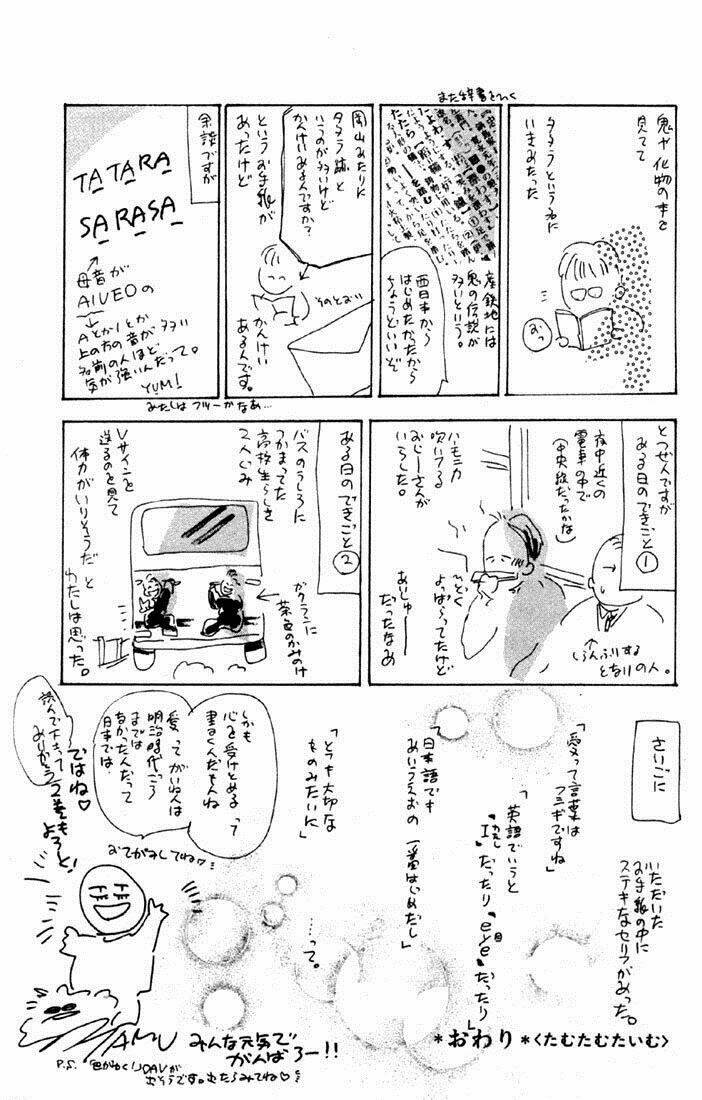 鬼や化物の本を
見てて
タタラという名に
いきあたった
おっ
また辞書をひく
産鉄地には
鬼の伝説が
多いという。
西日本から
はじめたかったから
ちょうどいいぞ
岡山あたりに
タタラ跡と
いうのが多いけど
かんけいあるんですか?
というお手紙が
あったけど
そのとおり
かんけい
あるんです。
余談ですが
TATARA
SARASA
母音が
AIUEOの
AとかIとか
上の方の音が多い
名前の人ほど
気が強いんだって。
YUMI
とつぜんですが
ある日のできごと①
夜中近くの
電車の中で
(中央線だったかな)
ハーモニカ
吹いてる
おじーさんが
いらした。
ひどく
よっぱらってたけど
あいしゅー
だったなあ
しらんふりする
となりの人。
ある日のできごと②
バスのうしろに
つかまってた
高校生らしき
2人ぐみ
ガクランに
茶色のかみのけ
Vサインを
送るのを見て
体力がいりそうだ と
わたしは思った。
さいごに
いただいた
お手紙の中に
ステキなセリフがあった。
「愛って言葉は
フシギですね」
「英語でいうと
"I"だったり"eye"だったり」
「日本語でも
あいうえおの 一番はじめだし」
「とても大切な
ものみたいに」
……って。
しかも
心を受けとめるって
書くんだもんね
愛ってがいねんは
明治時代ごろ
までは
なかったんだって
日本では
おてがみしてね♡
ではね♡
読んで下さって
ありがとう
2巻もよろしく!
みんな元気で
がんばろー!!
*おわり*<たむたむたいむ>